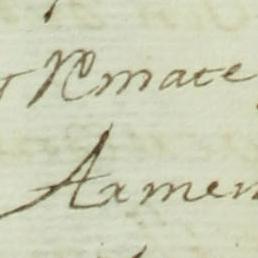 Remate
Axmen